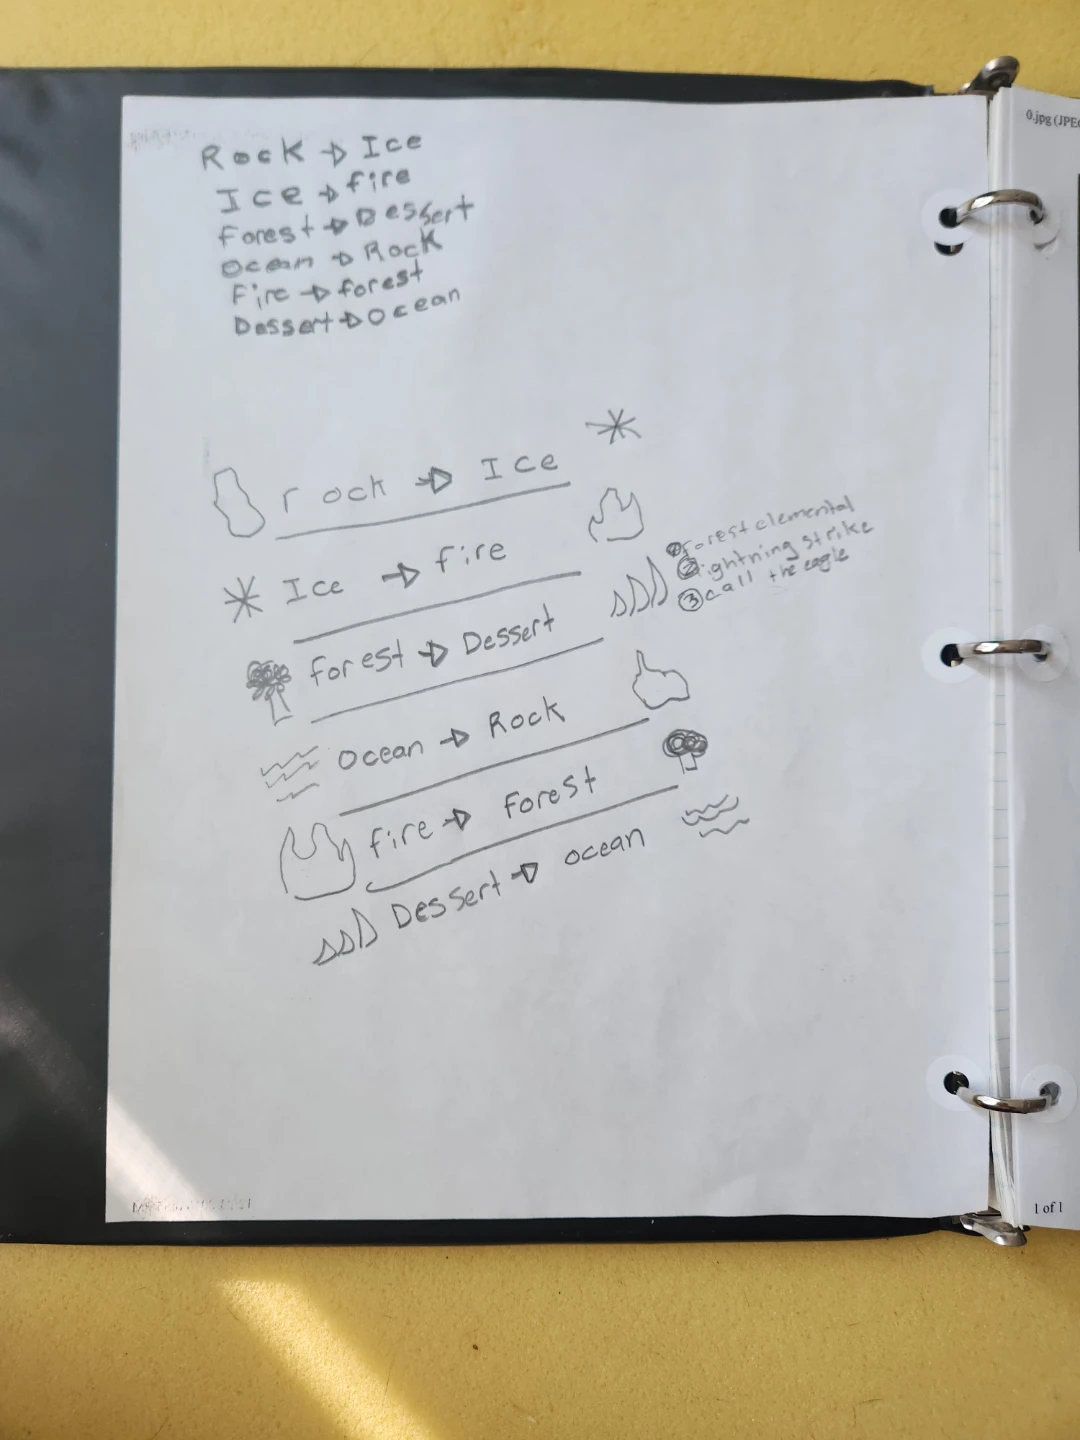 Rock → Ice
Ice → fire
Forest → Dessert
Ocean → Rock
Fire → forest
Dessert → Ocean
rock → Ice
Ice → fire
① Forest elemental
② lightning strike
③ call the eagle
forest → Dessert
Ocean → Rock
fire → Forest
Dessert → ocean
0.jpg (JPEG
1 of 1